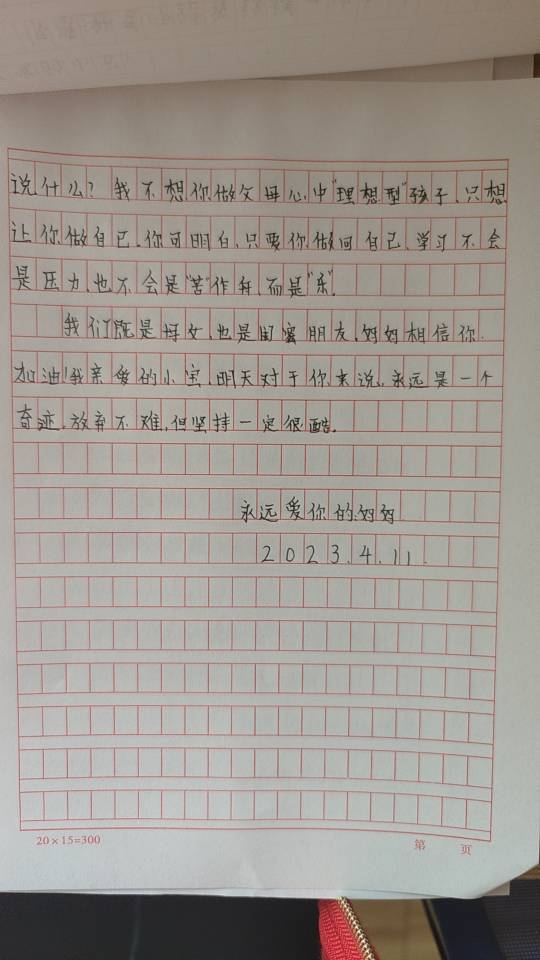 说什么？我不想你做父母心中"理想型"孩子、只想
让你做自己、你可明白、只要你做回自己、学习不会
是压力、也不会是"苦"作舟、而是"乐".
我们既是母女、也是闺蜜朋友、妈妈相信你.
加油！我亲爱的小宝、明天对于你来说、永远是一个
奇迹、放弃不难、但坚持一定很酷.
永远爱你的:妈妈
2023.4.11.
20×15=300
第 页